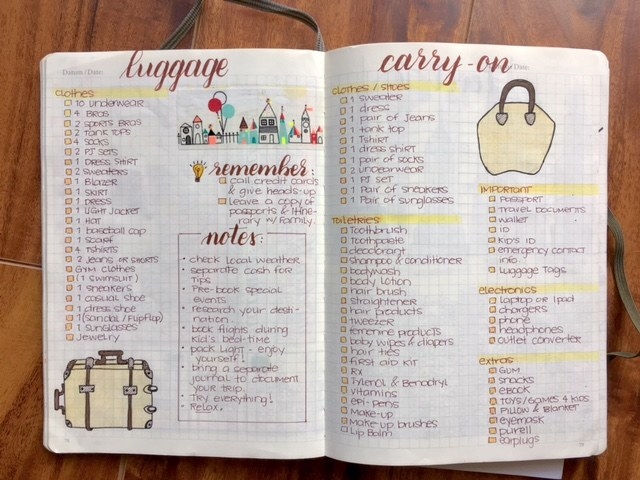 Datum / Date:
luggage
clothes
10 underwear
4 Bras
2 sports Bras
2 tank tops
4 socks
2 PJ sets
1 Dress shirt
2 sweaters
1 Blazer
1 skirt
1 dress
1 light jacket
1 hat
1 baseball cap
1 scarf
4 Tshirts
2 jeans or shorts
gym clothes
(1 swimsuit)
1 sneakers
1 casual shoe
1 dress shoe
1 (sandal / FlipFlop)
1 sunglasses
Jewelry
remember:
call credit cards
& give heads-up
leave a copy of
passports & itine-
rary w/ family.
notes:
• check local weather
• separate cash for
Tips
• Pre-book special
events
• research your desti-
nation.
• book flights during
kid's bed-time
• pack light - enjoy
yourself!
• bring a separate
journal to document
your trip.
• Try everything!
• Relax.
carry-on
Date:
clothes / shoes
1 sweater
1 dress
1 pair of jeans
1 tank top
1 Tshirt
1 dress shirt
1 pair of socks
2 underwear
1 PJ set
1 Pair of sneakers
1 Pair of sunglasses
toiletries
Toothbrush
Toothpaste
deodorant
shampoo & conditioner
bodywash
body lotion
hair brush
straightener
hair products
tweezer
feminine products
baby wipes & diapers
hair ties
first aid kit
RX
Tylenol & Benadryl
vitamins
epi-pens
make-up
make up brushes
Lip Balm
important
Passport
Travel documents
wallet
ID
Kid's ID
emergency contact
info.
Luggage Tags
electronics
Laptop or ipad
chargers
phone
headphones
outlet converter
extras
gum
snacks
eBook
Toys/Games 4 kids
Pillow & Blanket
eyemask
purell
earplugs